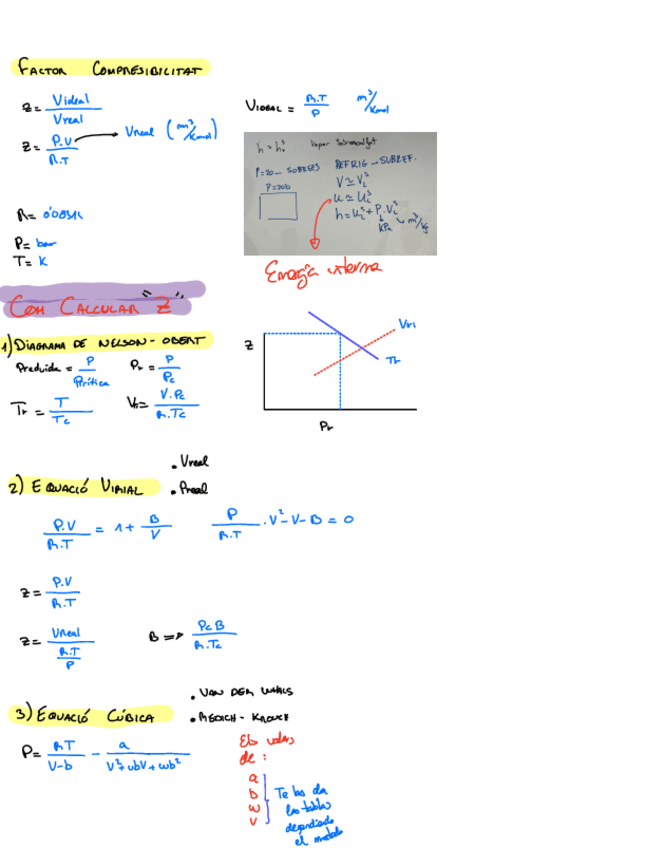 FACTOR COMPRESIBILITAT
Z = Videal / Vreal
VIDEAL = R.T / P m³/Kmol
Z = P.V / R.T → Vreal (m³/Kmol)
h > h
Vapor Sobreescalfat
P=20
P=20b
REFRIG → SUBREF.
V ≃ V
u ≃ U
h = U + P.V
KPa m³/kg
R = 0'08314
P = bar
T = K
Energía interna
COM CALCULAR "Z"
1) DIAGRAMA DE NELSON - OBERT
Preduida = P / Pcrítica Pr = P / Pc
Tr = T / Tc Vr = V.Pc / R.Tc
Z
Vri
Tr
Pr
2) EQUACIÓ VIRIAL
• Vreal
• Preal
P.V / R.T = 1 + B / V P / R.T . V² - V - B = 0
Z = P.V / R.T
Z = Vreal / (R.T / P) B => Pc B / R.Tc
3) EQUACIÓ CÚBICA
• VAN DER WAALS
• REDLICH - KWONG
P = RT / V-b - a / V² + ubV + wb²
Els valors
de :
a
b
w
v
Te los da
las tablas
dependiendo
el metodo